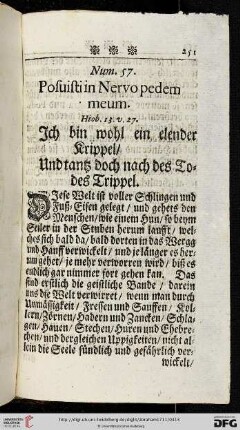 ❀ ❀ ❀ 251
Num. 57.
Posuisti in Nervo pedem
meum.
Hiob. 13. v. 27.
Ich bin wohl ein elender
Krippel/
Und tantz doch nach des To-
des Trippel.
Diese Welt ist voller Schlingen und
Fuß-Eisen gelegt/ und gehets den
Menschen/ wie einem Hun/ so beym
Seiler in der Stuben herum laufft/ wel-
ches sich bald da/ bald dorten in das Weragg
und Hanff verwickelt/ und je länger es her-
um gehet/ je mehr verworren wird/ biß es
endlich gar nimmer fort gehen kan. Das
sind erstlich die geistliche Bande/ darein
uns die Welt verwirret/ wenn man durch
Unmässigkeit/ Fressen und Sauffen/ Kol-
lern/ Zörnen/ Hadern und Zancken/ Schla-
gen/ Hauen/ Stechen/ Huren und Ehebre-
chen/ und dergleichen Uppigkeiten/ nicht al-
lein die Seele sündlich und gefährlich ver-
wickelt/
DFG